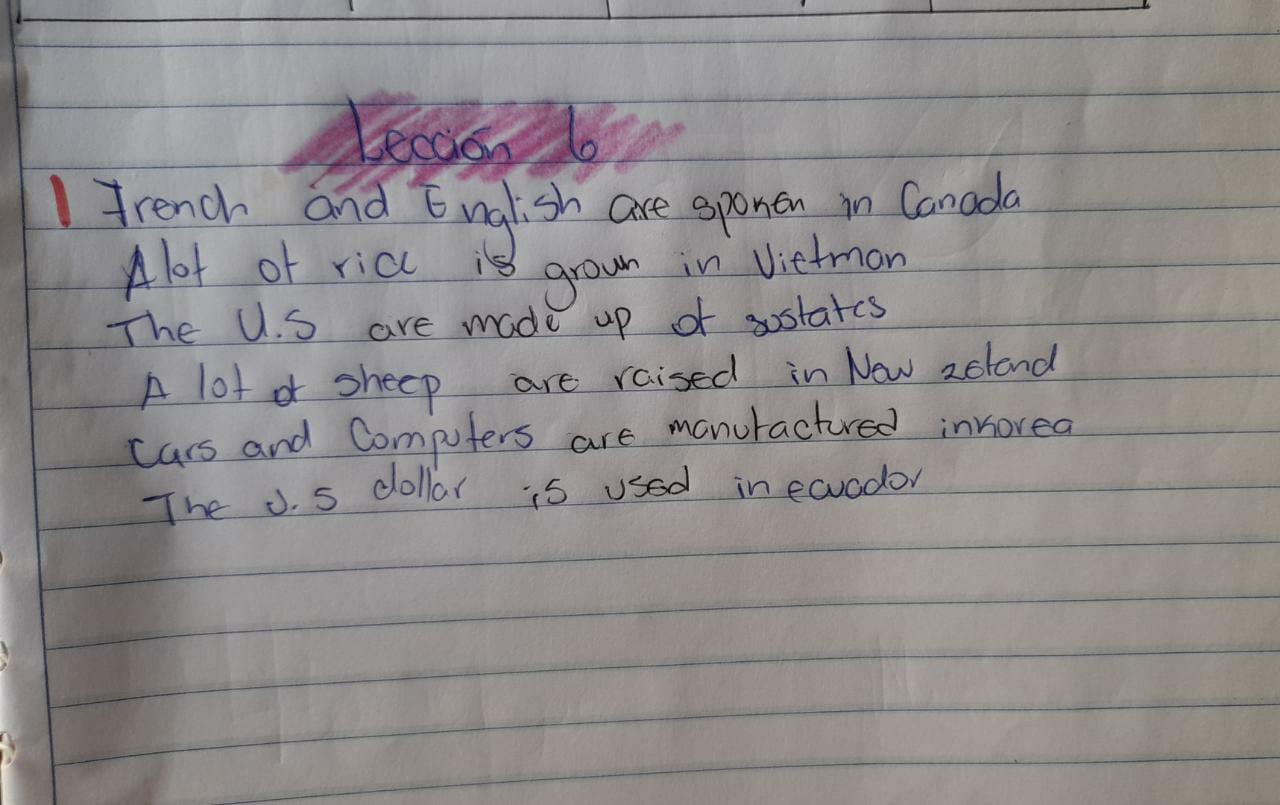 Lección 6
1 French and English are spoken in Canada
A lot of rice is grown in Vietman
The U.S are made up of sustates
A lot of sheep are raised in New zeland
Cars and Computers are manufactured inkorea
The U.S dollar is used in ecuador